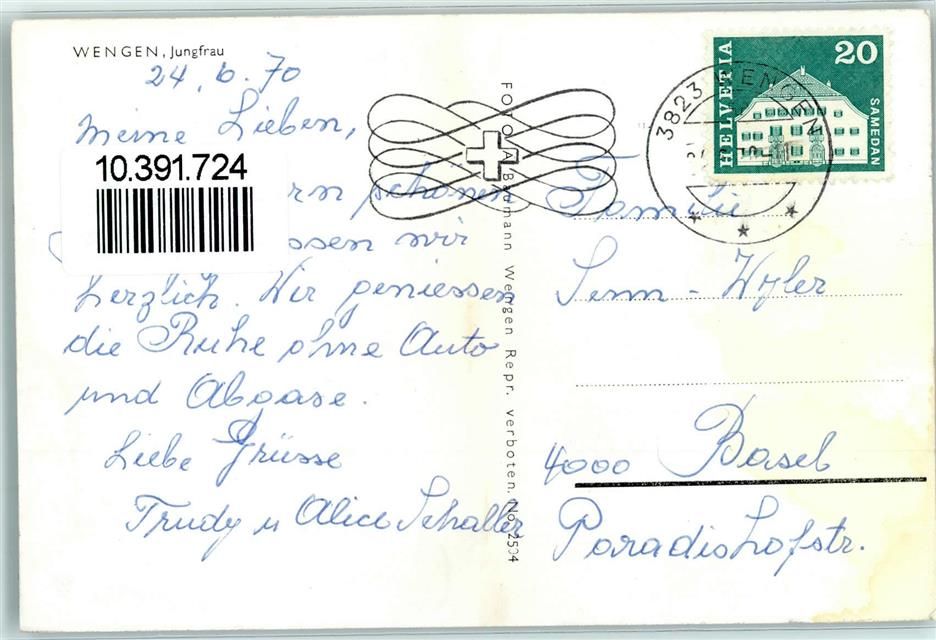 WENGEN, Jungfrau
24.6.70
Meine Lieben,
10.391.724
schönen
wir
herzlich. Wir geniessen
die Ruhe ohne Auto
und Abgase.
Liebe Grüsse
Trudy u Alice Schaller
FOTO Wengen Repr. verboten. No. 2504
HELVETIA
20
SAMEDAN
3823 WENGEN
Familie
Senn-Wyler
4000 Basel
Paradishofstr.